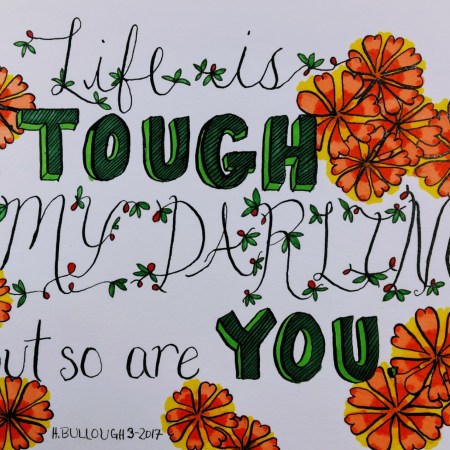 Life is
TOUGH
MY DARLIN
but so are YOU.
H.BULLOUGH 3-2017